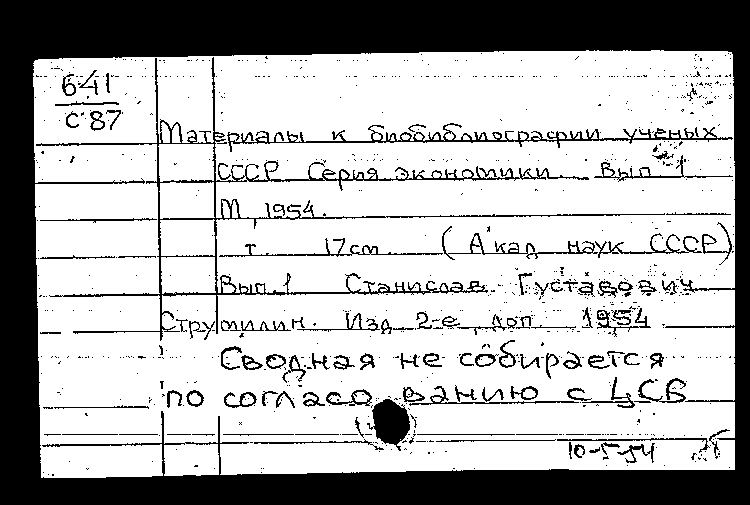 6-41
с 87
Материалы к биобиблиографии ученых
СССР Серия экономики. Вып 1
М, 1954.
т 17cm. (Акад наук СССР)
Вып. 1 Станислав Густавович
Струмилин. Изд 2-е, доп. 1954.
Сводная не собирается
по согласо ванию с ЦСБ
10-5-54